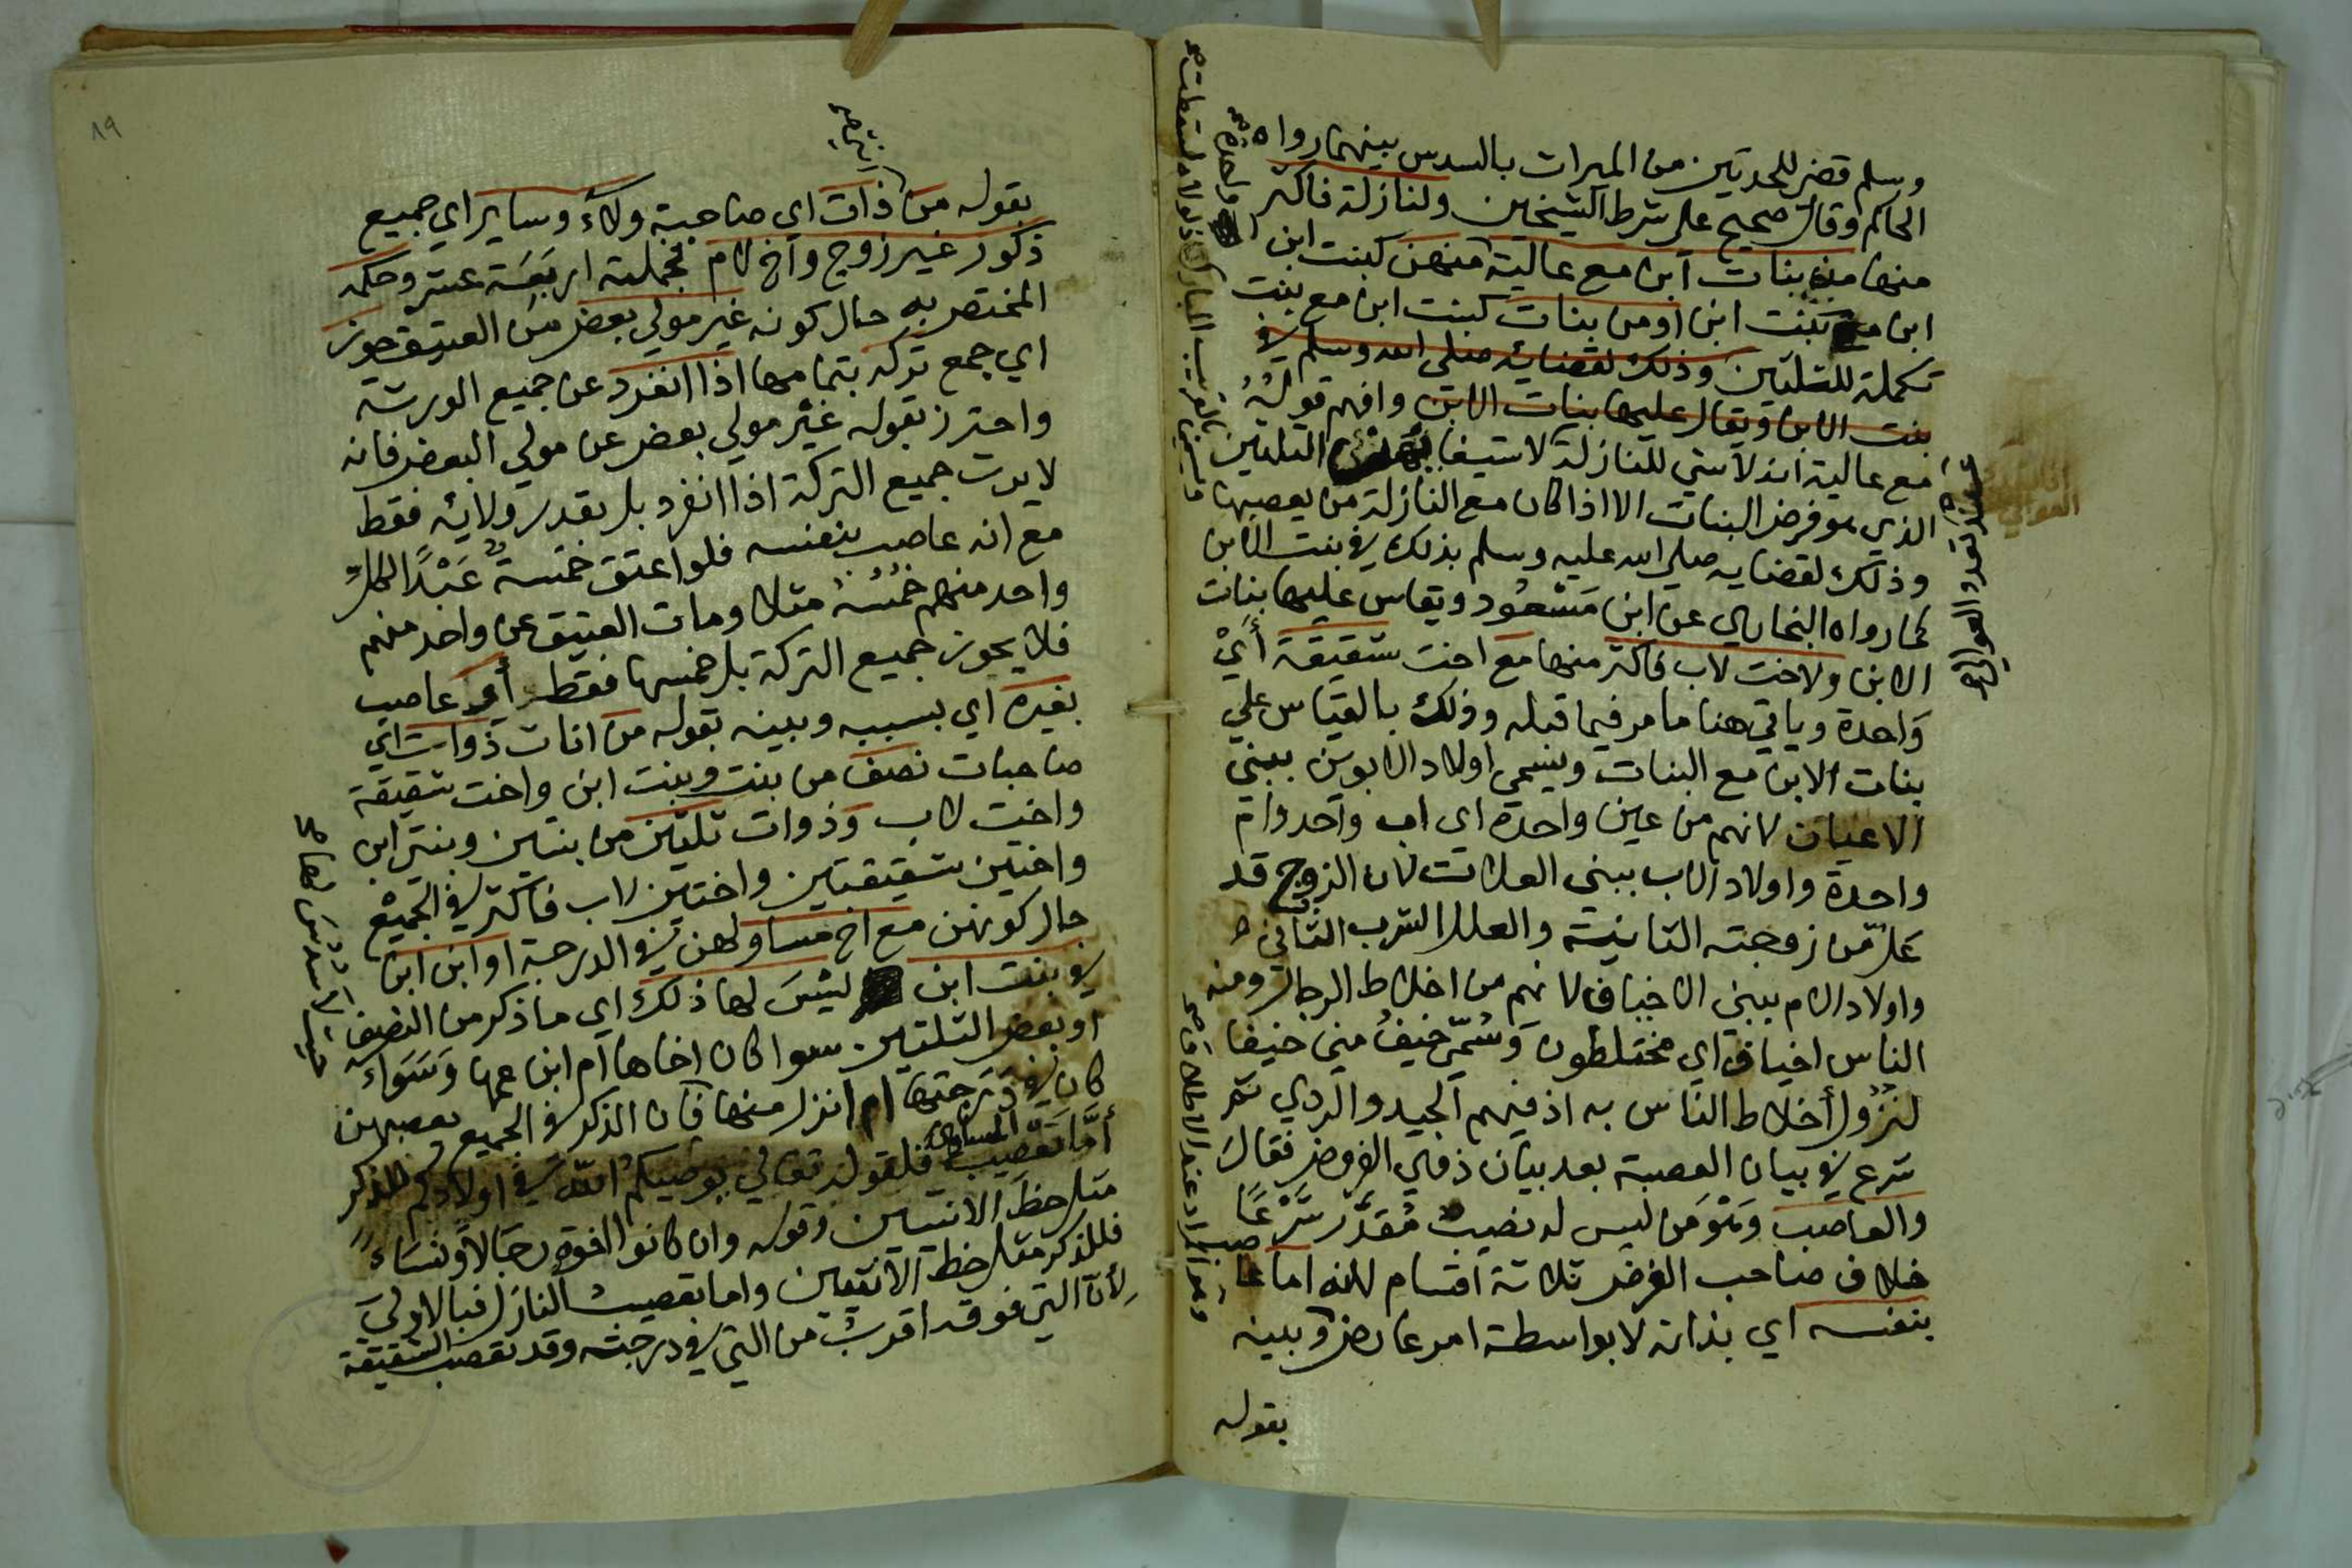 وسلم قضى للجدتين من الميراث بالسدس بينهما رواه
الحاكم وقال صحيح على شرط الشيخين ولنازلة فاكثر
منها من بنات ابن مع عالية منهن كبنت ابن
ابن مع بنت ابن او من بنات كبنت ابن مع بنت
تكملة للثلثين وذلك لقضائه صلى الله وسلم في
بنت الابن ويقال عليها بنات الابن وافهم قوله
مع عالية انه لا شي للنازلة لاستيفا الثلثين
الذي هو فرض البنات الا اذا كان مع النازلة من يعصبها
وذلك لقضايه صلى الله عليه وسلم بذلك في بنت الابن
كما رواه البخاري عن ابن مَسْعُود ويقاس عليها بنات
الابن ولاخت لاب فاكثر منها مع اخت شقيقة أَيْ
وَاحدة وياتي هنا ما مر فيما قبله وذلك بالقياس علي
بنات الابن مع البنات ويسمي اولاد الابوين ببني
الاعيان لانهم من عين واحدة اى اب واحد وام
واحدة واولاد الاب ببني العلات لان الزوج قد
عَلَّ من زوجته الثانية والعلل الشرب الثاني
واولاد الام ببني الاخياف لانهم من اخلاط الرجال ومنه
الناس اخياف اي مختلطون وَسُمّي خيفُ مني خيفا
لنزُول أخلاط الناس به اذ فيهم الجيد والردي ثم
شرع في بيان العصبة بعد بيان ذوي الفروض فقالَ
والعاصب وَهْوَ من ليس له نصيب مُقدَّر شَرْعًا
خلاف صاحب الفرض ثلاثة اقسام لانه اما عاصب
بنفسه اي بذاته لا بواسطة امر عارض وبينه
بقوله
واحدة صح
عند تعدد العوالي
وهو المراد عند الاطلاق صح
٨٩
بقوله من ذات اي صاحبة ولاء وساير اي جميع
ذكور غير زوج واخ لام فجملته اربَعَة عشر وحكمه
المختص به حال كونه غير مولي بعض من العتيق حوز
اي جمع تركه بتمامها اذا انفرد عن جميع الورثة
واحترز بقوله غير مولي بعض عن مولي البعض فانه
لا يرث جميع التركة اذا انفرد بل بقدر ولايه فقط
مع انه عاصب بنفسه فلو اعتق خمسة عَبْدًا لكل
واحد منهم خُمُسُه مثلا ومات العتيق عن واحد منهم
فلا يحوز جميع التركة بل خمسها فقط أو عاصب
بغيره اي بسببه وبينه بقوله من اناث ذوات اي
صاحبات نصف من بنت وبنت ابن واخت شقيقة
واخت لاب وَذوات ثلثين من بنتين وبنتي ابن
واختين شقيقتين واختين لاب فاكثر في الجميع
حال كونهن مع اخ مساو لهن في الدرجة او ابن ابن
في بنت ابن ليْسَ لها ذلك اي ما ذكر من النصف
او بعض الثلثين سوا كان اخاها ام ابن عمها وَسَوَاء
كان في دَرجتها ام انزل منها فان الذكر في الجميع يعصبهن
أمَّا تَعْصِيب المساوي فلقوله تعالي يوصيكم الله في اولادكم للذكر
مثل حظ الانثيين وقوله وان كانوا اخوة رجالا ونساء
فللذكر مثل حظ الانثيين واما تعصيب النازل فبالاولي
لأن التي فوقه اقربُ من التي في درجته وقد تعصب الشقيقة